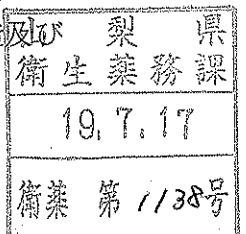 及び 梨県
衛生薬務課
19.7.17
衛薬 第1138号